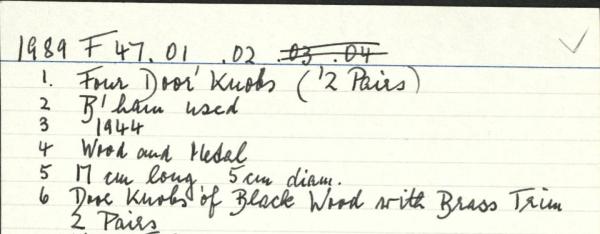 1989 F 47.01 .02 .03 .04
1. Four Door Knobs ('2 Pairs)
2 B'ham used
3 1944
4 Wood and Metal
5 17 cm long 5 cm diam.
6 Door Knobs of Black Wood with Brass Trim
2 Pairs